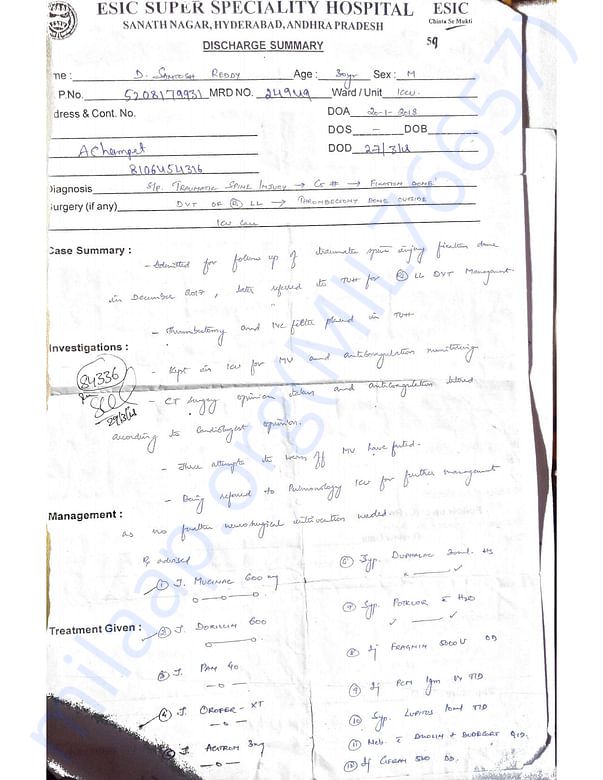 ESIC SUPER SPECIALITY HOSPITAL
ESIC
SANATH NAGAR, HYDERABAD, ANDHRA PRADESH
Chinta Se Mukti
DISCHARGE SUMMARY
59
me : D. Santosh Reddy Age : 30yr Sex : M
P.No. 5208179931 MRD NO. 24949 Ward / Unit ICU
dress & Cont. No. DOA 20-1-2018
DOS - DOB
AChampet DOD 27/3/18
8106454316
Diagnosis S/p. TRAUMATIC SPINE INJURY → C5 # → FIXATION DONE
urgery (if any) DVT OF (R) LL → THROMBECTOMY DONE OUTSIDE
ICU CARE
Case Summary :
- Admitted for follow up of traumatic spine injury fixation done
in December 2017, later referred to for (R) LL DVT Management
- Thrombectomy and IVC filter placed in
Investigations :
- Kept in ICU for MV and anticoagulation monitoring
84336
27/3/18
- CT Surgery opinion taken and anticoagulation
according to Cardiologist opinion.
- Three attempts to wean off MV have failed.
- Being referred to Pulmonology ICU for further management
Management :
as no further neurosurgical intervention needed.
Rx advised
① T. MUCINAC 600 mg
⑥ Syp. DUPHALAC 30ml HS
Treatment Given :
② T. 600
⑦ Syp. POTKLOR H2O
③ T. PAN 40
⑧ Inj FRAGMIN 5000 U OD
④ T. OROFER-XT
⑨ Inj PCM 1gm IV TID
⑤ T. ACITROM 3mg
⑩ Syp. 10ml TID
⑪ Neb. DUOLIN + BUDECORT QID
⑫ OD.
milaap.org(MIL766657)